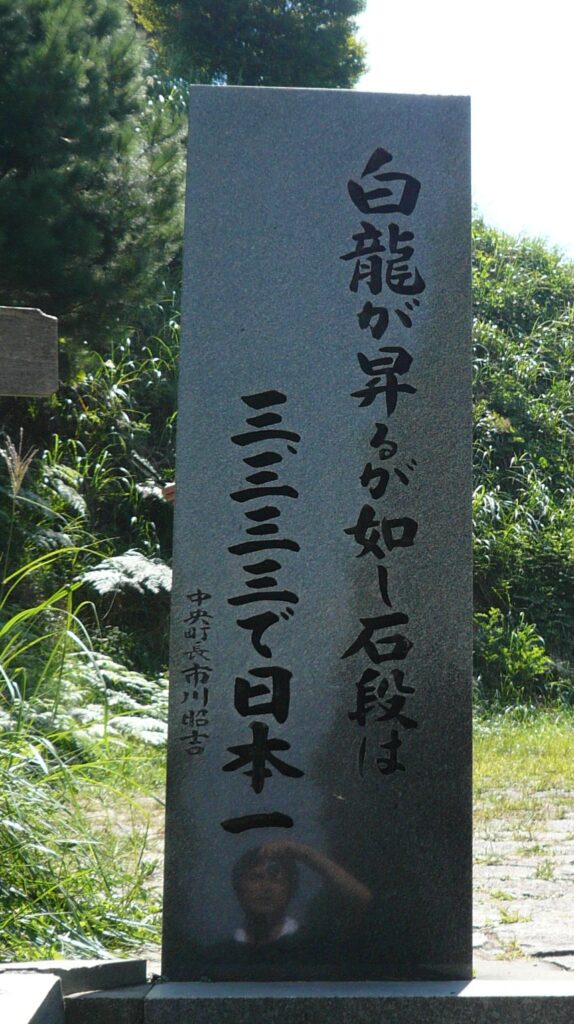 白龍が昇るが如し石段は
三、三三三で日本一
中央町長 市川昭吉